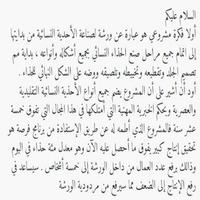 السلام عليكم
أولا فكرة مشروعي هو عبارة عن ورشة لصناعة الأحذية النسائية من بدايتها
إلى اتمام جميع مراحل صنع الحذاء النسائي بجميع أشكاله وأنواعه ، بداية من
تصميم الجلد وتقطيعه وتخييطه وتلصيقه ووضعه على الشكل النهائي للحذاء .
أود أن أشير على أن المشروع يضم جميع أنواع الأحذية النسائية التقليدية
والعصرية وبحكم الخبرية المهنية التي أمتلكها في هذا المجال التي تفوق خمسة
عشر سنة فالمشروع الذي أطمح له عن طريق الإستفادة من برنامج فرصة هو
تحقيق إنتاج كبير يفوق ما أحصل عليه الآن وهو معدل مئة حذاء في اليوم
وذلك برفع عدد العمال من داخل الورشة إلى خمسة أشخاص . سيساعد في
رفع الإنتاج إلى الضعف مما سيرفع من مردودية الورشة